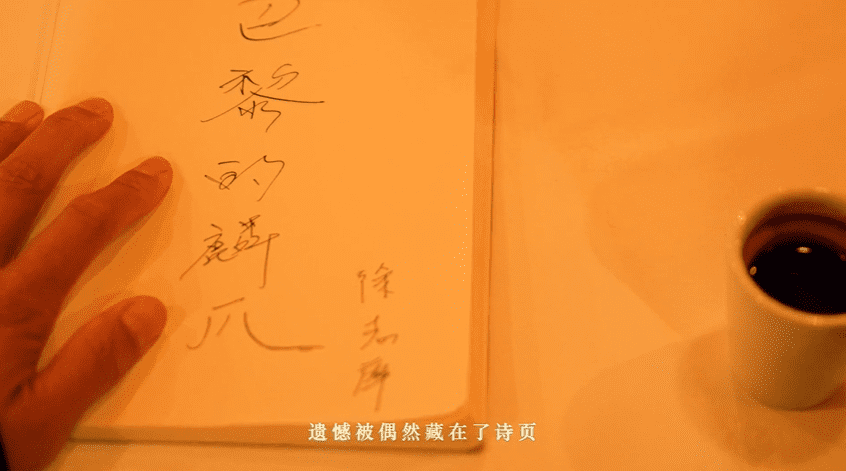 巴黎的麟爪
徐志摩
遗憾被偶然藏在了诗页